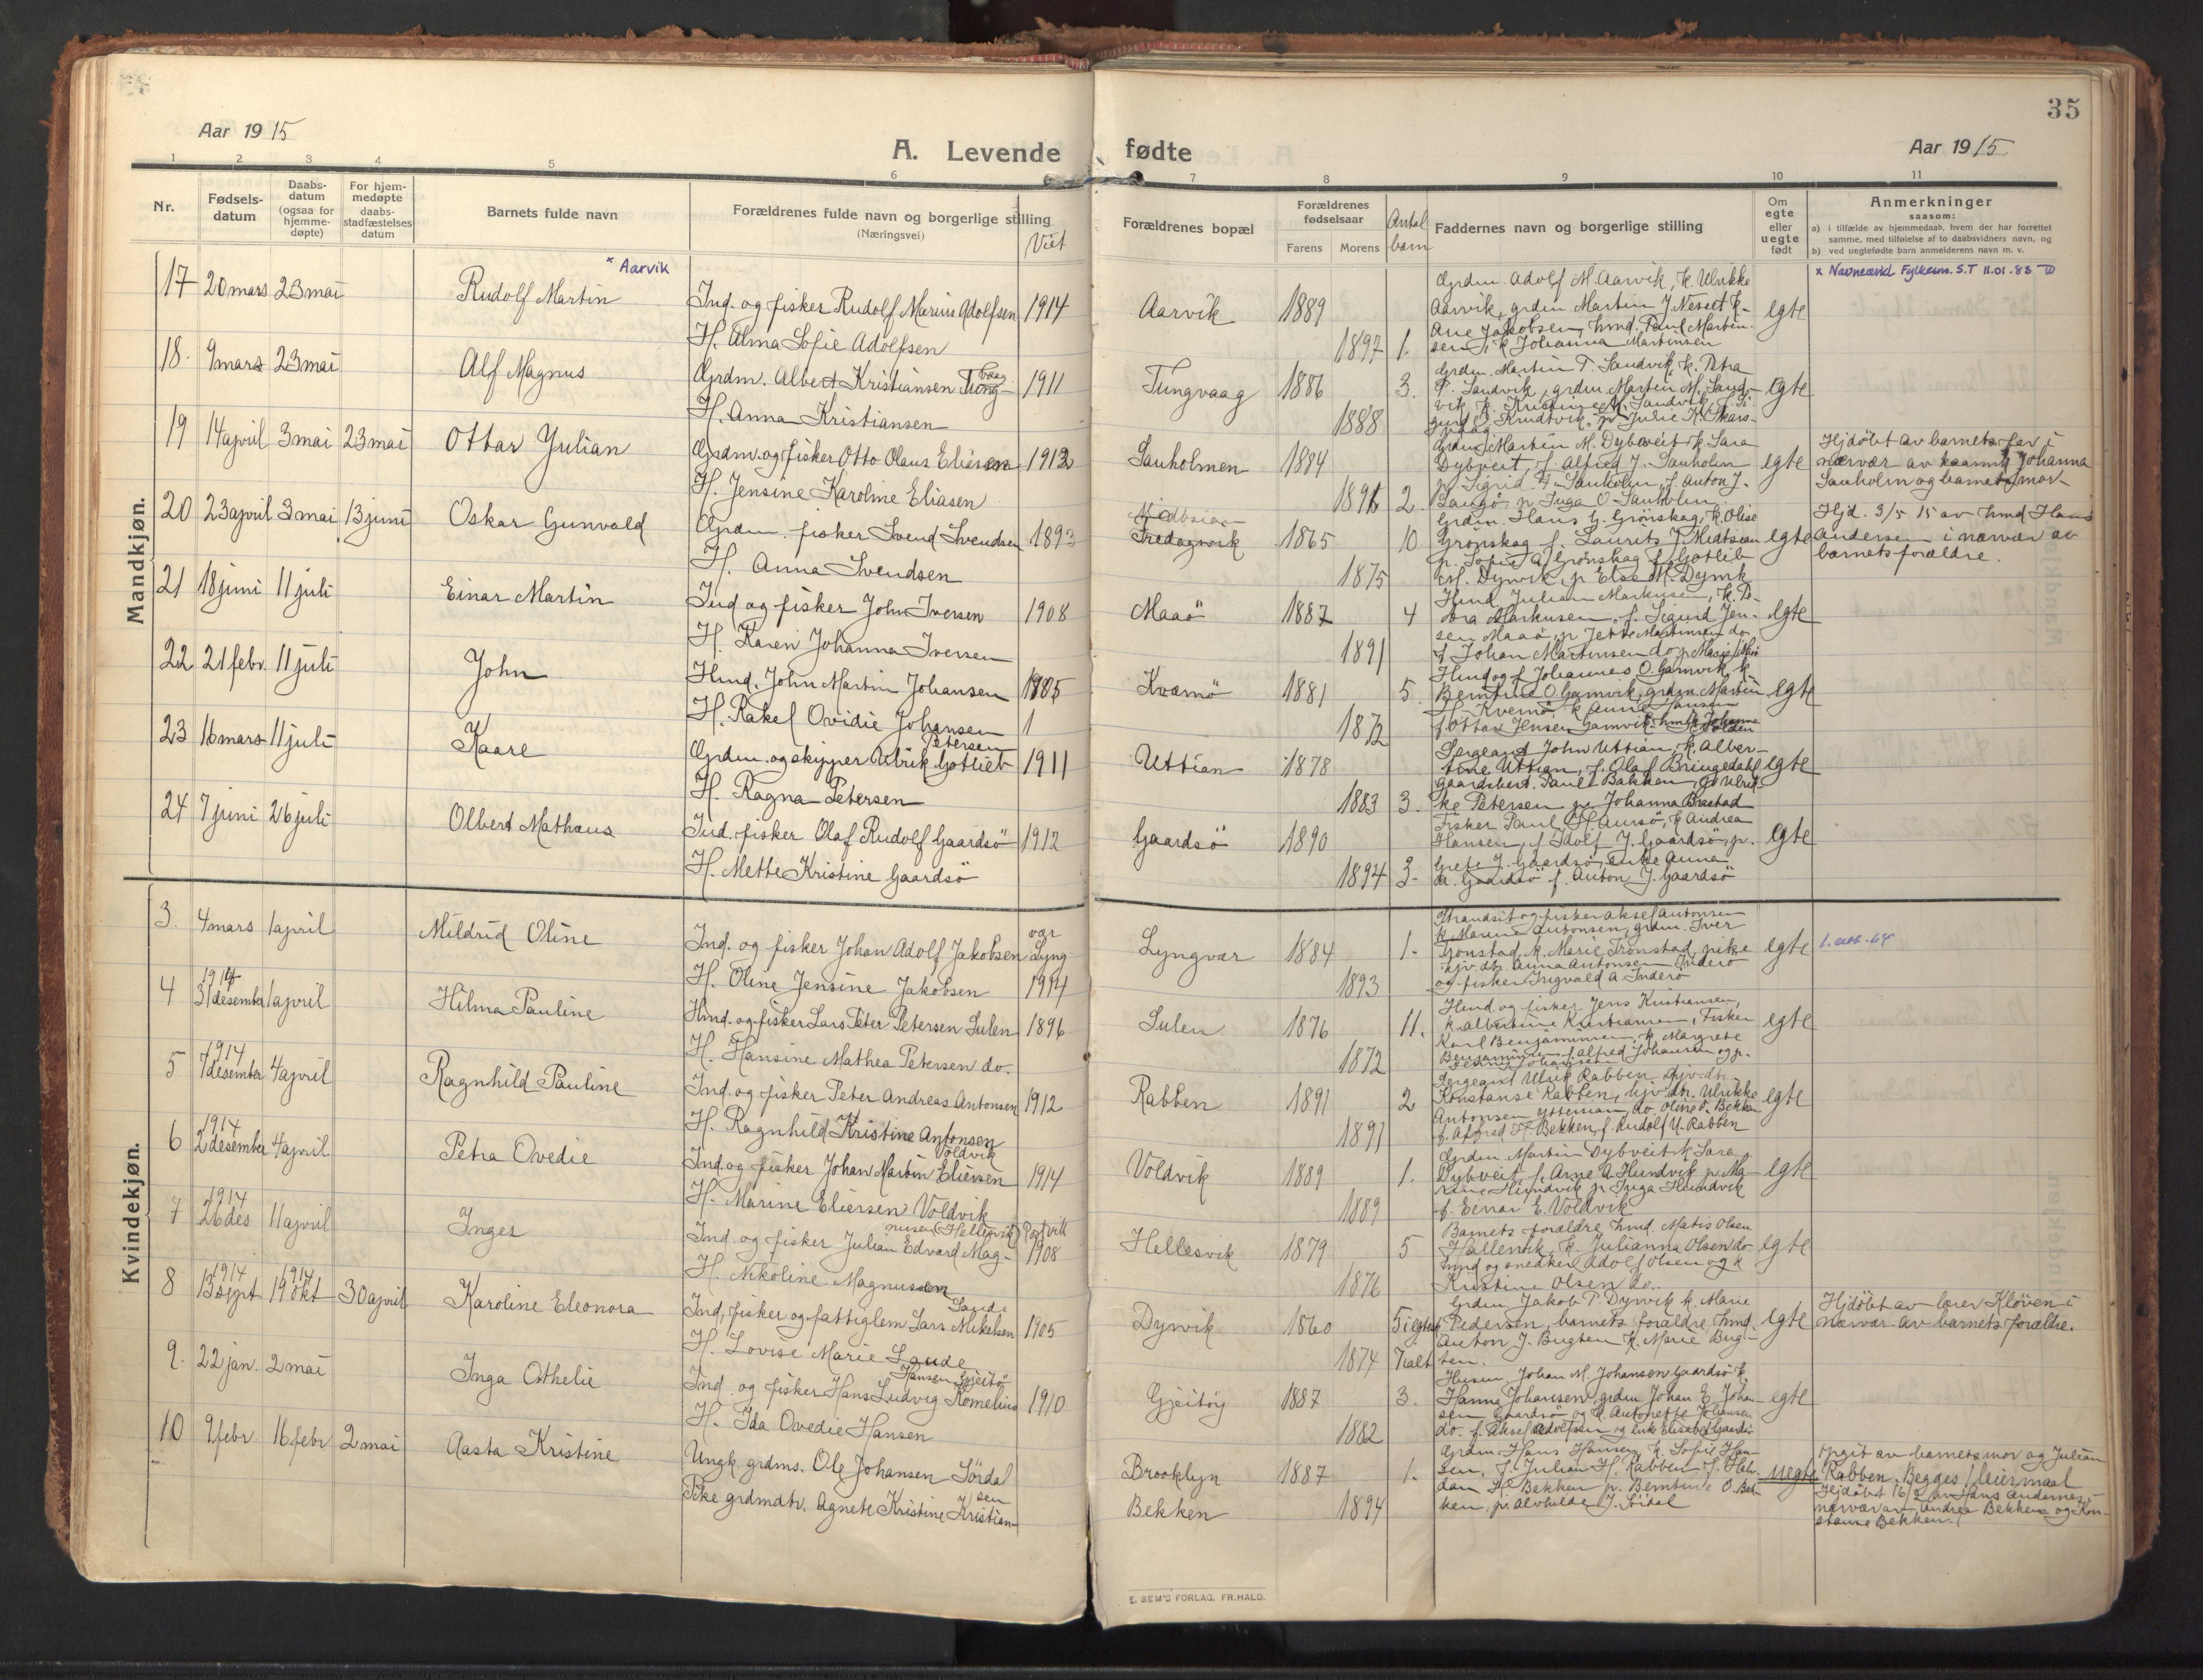 35
Aar 1915
A. Levende fødte
Aar 1915
1 2 3 4 5 6 7 8 9 10 11
Nr.
Fødsels-
datum
Daabs-
datum
(ogsaa for
hjemme-
døpte)
For hjem-
medøpte
daabs-
stadfæstelses
datum
Barnets fulde navn
Forældrenes fulde navn og borgerlige stilling
(Næringsvei)
Viet
Forældrenes bopæl
Forældrenes
fødselsaar
Farens Morens
Antal
barn
Faddernes navn og borgerlige stilling
Om
egte
eller
uegte
født
Anmerkninger
saasom:
a) i tilfælde av hjemmedaab, hvem der har forrettet
samme, med tilføielse af to daabsvidners navn, og
b) ved uegtefødte barn anmelderens navn m. v.
Mandkjøn.
17 20 mars 23 mai Rudolf Martin × Aarvik
Ind. og fisker Rudolf Marius Adolfsen 1914
H. Alma Sofie Adolfsen
Aarvik 1889 1897 1.
Grdm. Adolf M. Aarvik, k. Ulrikke
Aarvik, grdm Martin J. Nesset k.
Ane Jakobsen, hmd. Paul Martin-
sen, k. Johanna Martinsen
egte
× Navneævnd Fylkesm. S.T 11.01.83
18. 9 mars 23 mai Alf Magnus
Grdm. Albert Kristiansen Tung-
vaag 1911
H. Anna Kristiansen
Tungvaag 1886 1888 3.
Grdm. Martin P. Sandvik, k. Petra
P. Sandvik, grdm Martin M. Sand-
vik, k. Kristine M. Sandvik, f. Si-
gurd O. Knudtvik, p. Julie K. Skars-
vaag
egte
19 14 april 3 mai 23 mai Ottar Julian
Grdm. og fisker Otto Olaus Eliasen 1912
H. Jensine Karoline Eliasen
Sauholmen 1884 1891 2.
Grdm Martin M. Dybveit k. Sara
Dybveit, f. Alfred J. Sauholm
p. Sigrid Sauholm, f. Anton J.
p. Inga O Sauholm
egte
Hjdøbt av barnets far i
nærvær av Johanna
Sauholm og barnets mor
20 23 april 3 mai 13 juni Oskar Gunvald
Grdm. fisker Svend Svendsen 1893
H. Anna Svendsen
Midtsian
Fredagsvik 1865 1875 10
Grdm. Hans G. Grönskag, k. Olise
Grönskag f. Laurits J. Midtsian
p. Sofie A. Grönskag f. Gotlieb
M. Dyrvik, p Else M. Dyrvik
egte
Hjd. 3/5 15 av hmd Hans
Andersen i nærvær av
barnets forældre.
21 18 juni 11 juli Einar Martin
Ind og fisker John Iversen 1908
H. Karen Johanna Iversen
Maaö 1887 1891 4
Hmd Julian Markusen, k. Do-
ra Markusen, f. Sigurd Jen-
sen Maaö, p Jette Martinsen do
f Johan Martinsen do p Marie
egte
22 21 febr. 11 juli John
Hmd. John Martin Johansen 1905
H. Rakel Ovidie Johansen 1
Kvamö 1881 1872 5.
Hmd og f Johannes O. Gamvik, k.
Berntine O. Gamvik, grdm Martin
H. Kvamö, k Anna Hansen
f. Ottar Jensen Gamvik
egte
23 16 mars 11 juli Kaare
Grdm. og skipper Ulrik Gotlieb
Petersen 1911
H. Ragna Petersen
Uttian 1878 1883 3.
Sergeant John Uttian, k. Alber-
tine Uttian, f. Olaf Bringedahl
gaardsbest. Paul Bakken, p. Ulrik-
ke Petersen p. Johanna Brastad
egte
24 7 juni 26 juli Olbert Mathæus
Ind. fisker Olaf Rudolf Gaardsö 1912
H. Mette Kristine Gaardsö
Gaardsö 1890 1894 3.
Fisker Paul Haursö, k Andrea
Hansen, f Idolf J. Gaardsö, p.
Grete J. Gaardsö, enke Anne
M. Gaardsö f. Anton J. Gaardsö
egte
Kvindekjøn.
3. 4 mars 1 april Mildrid Oline
Ind. og fisker Johan Adolf Jakobsen Lyng
vær
H. Oline Jensine Jakobsen 1914
Lyngvær 1884 1893 1.
Strandsit. og fisker Aksel Antonsen
k. Maren Antonsen, grdm. Iver
Tronstad, k. Marie Tronstad, pike
hjv. dtr. Anna Antonsen Inderö
og fisker Ingvald A Inderö
egte
4 1914
31 desember 1 april Hilma Pauline
Hmd. og fisker Lars Peter Petersen Sulen 1896
H. Hansine Mathea Petersen do.
Sulen 1876 1872 11.
Hmd. og fisker Jens Kristiansen,
k Albertine Kristiansen, Fisker
Karl Benjaminsen, k. Margrete
Benjaminsen, f. Alfred Johansen og p.
Johansen
egte
5 1914
7 desember 4 april Ragnhild Pauline
Ind. og fisker Peter Andreas Antonsen 1912
H. Ragnhild Kristine Antonsen
Rabben 1891 1891 2
Sergeant Ulrik Rabben hjv. dtr.
Konstanse Rabben, hjv. dtr. Ulrikke
Antonsen Ytterman, do. Oline P. Bekken
f. Alfred H. Bekken, f. Rudolf U. Rabben
egte
6 1914
2 desember 4 april Petra Ovedie
Ind. og fisker Johan Martin Eliersen
Voldvik 1914
H. Marine Eliersen Voldvik
Voldvik 1889 1889 1.
Grdm. Martin Dybveit k. Sara
Dybveit, f. Arne A. Hundvik p. Ma-
rine Hundvik p. Inga Hundvik
f. Einar E. Voldvik
egte
7 1914
26 des 11 april Inger
Ind. og fisker Julian Edvard Mag-
nusen (Hellesvik) 1908
H. Nikoline Magnusen
Hellesvik 1879 1876 5
Barnets forældre hmd. Matis Olsen
Hellesvik, k. Julianna Olsen do
hmd og snedker Adolf Olsen og k
Kristine Olsen do.
egte
8 1914
13 sept 1914
19 okt 30 april Karoline Eleonora
Ind, fisker og fattiglem Lars Mikelsen
Sande 1905
H. Lovise Marie Sande
Dyrvik 1860 1874 5 i egtesk
7 ialt
Grdm Jakob P. Dyrvik k. Marie
Pedersen, barnets forældre, hmd.
Anton J. Bugten k. Marie Bug-
ten.
egte
Hjdøbt av lærer Kløven i
nærvær av barnets forældre.
9. 22 jan. 2 mai Inga Othelie
Ind. og fisker Hans Ludvig Kornelius
Hansen Gjeitö 1910
H. Ida Ovedie Hansen
Gjeitöy 1887 1882 3.
Johan M. Johansen Gaardsö k.
Hanna Johansen, grdm Johan E. Johan-
sen Gaardsö og k. Antonette Johansen
do. f. Aksel Adolfsen og enke Elisabet Gaardsö
egte
10 9 febr 16 febr 2 mai Aasta Kristine
Ungk. grdms. Ole Johansen Sördal
Pike grdmdtr. Agnete Kristine Kristian-
sen
Brooklyn 1887
Bekken 1894 1.
Grdm. Hans Hansen, k. Sofie Han-
sen, f. Julian H. Rabben, f. Hal-
dan H. Bekken p. Berntine O. Bek-
ken, p. Alvhilde J. Sördal
uegte
Opgit av barnets mor og Julian
Rabben. Begges 1 leiermaal
Hjdøbt 16/2 av Hans Andersen i
nærvær av Andrea Bekken og Kon-
stanse Bekken.
E. SEM'S FORLAG, FR.HALD.